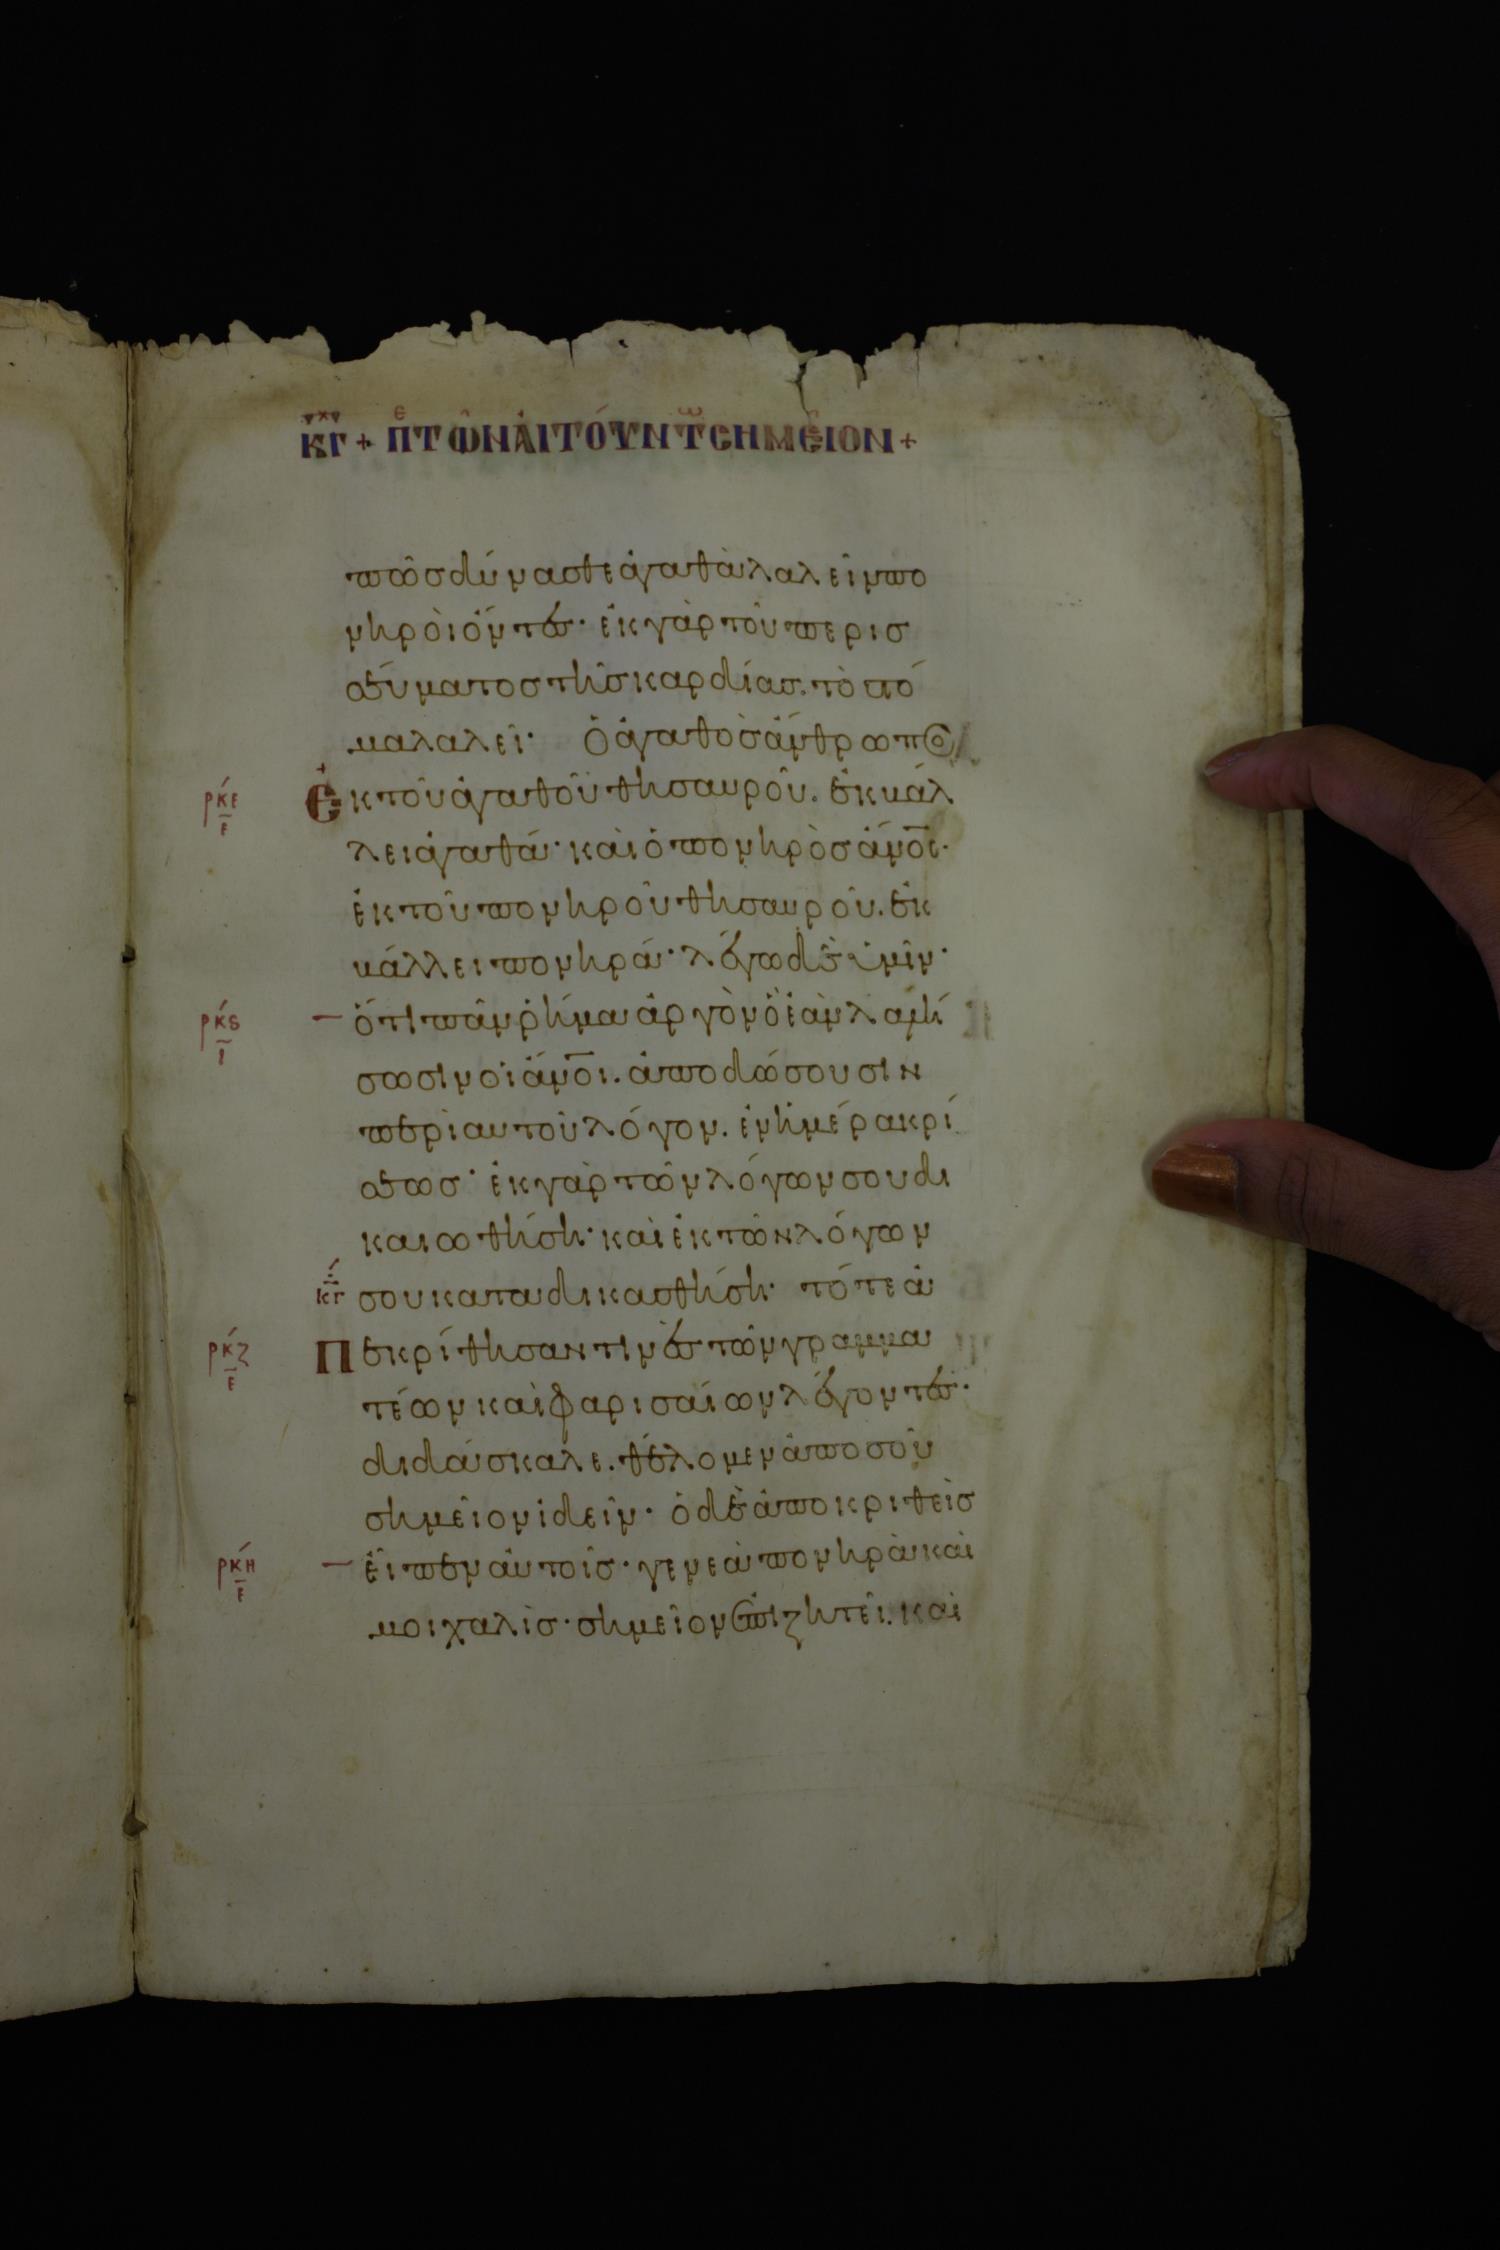 κγ + πε τῶν αἰτούντων σημεῖον +
πῶς δύνασθε ἀγαθὰ λαλεῖν πο
νηροὶ ὄντες· ἐκ γὰρ τοῦ περισ
σεύματος τῆς καρδίας. τὸ στό
μα λαλεῖ· ὁ ἀγαθὸς ἄνθρωπος
ρκε ε Ἐκ τοῦ ἀγαθοῦ θησαυροῦ. ἐκβάλ
λει ἀγαθά· καὶ ὁ πονηρὸς ἄνος·
ἐκ τοῦ πονηροῦ θησαυροῦ. ἐκ
βάλλει πονηρά· λέγω δὲ ὑμῖν·
ρκς ι ὅτι πᾶν ῥῆμα ἀργὸν ὃ ἐὰν λαλή
σωσιν οἱ ἄνοι. ἀποδώσουσιν
περὶ αυτοῦ λόγον. ἐν ἡμέρα κρί
σεως· ἐκ γὰρ τῶν λόγων σου δι
καιωθήση· καὶ ἐκ τῶν λόγων
κγ σου καταδικασθήση· τότε ἀ
ρκζ ε Πεκρίθησαν τινὲς τῶν γραμμα
τέων καὶ φαρισαίων λέγοντες·
διδάσκαλε. θέλομεν ἀπο σοῦ
σημεῖον ἰδεῖν· ὁ δὲ ἀποκριθεὶς
ρκη ε εἶπεν αὐτοῖς· γενεὰ πονηρὰ καὶ
μοιχαλὶς· σημεῖον ἐπιζητεῖ. καὶ